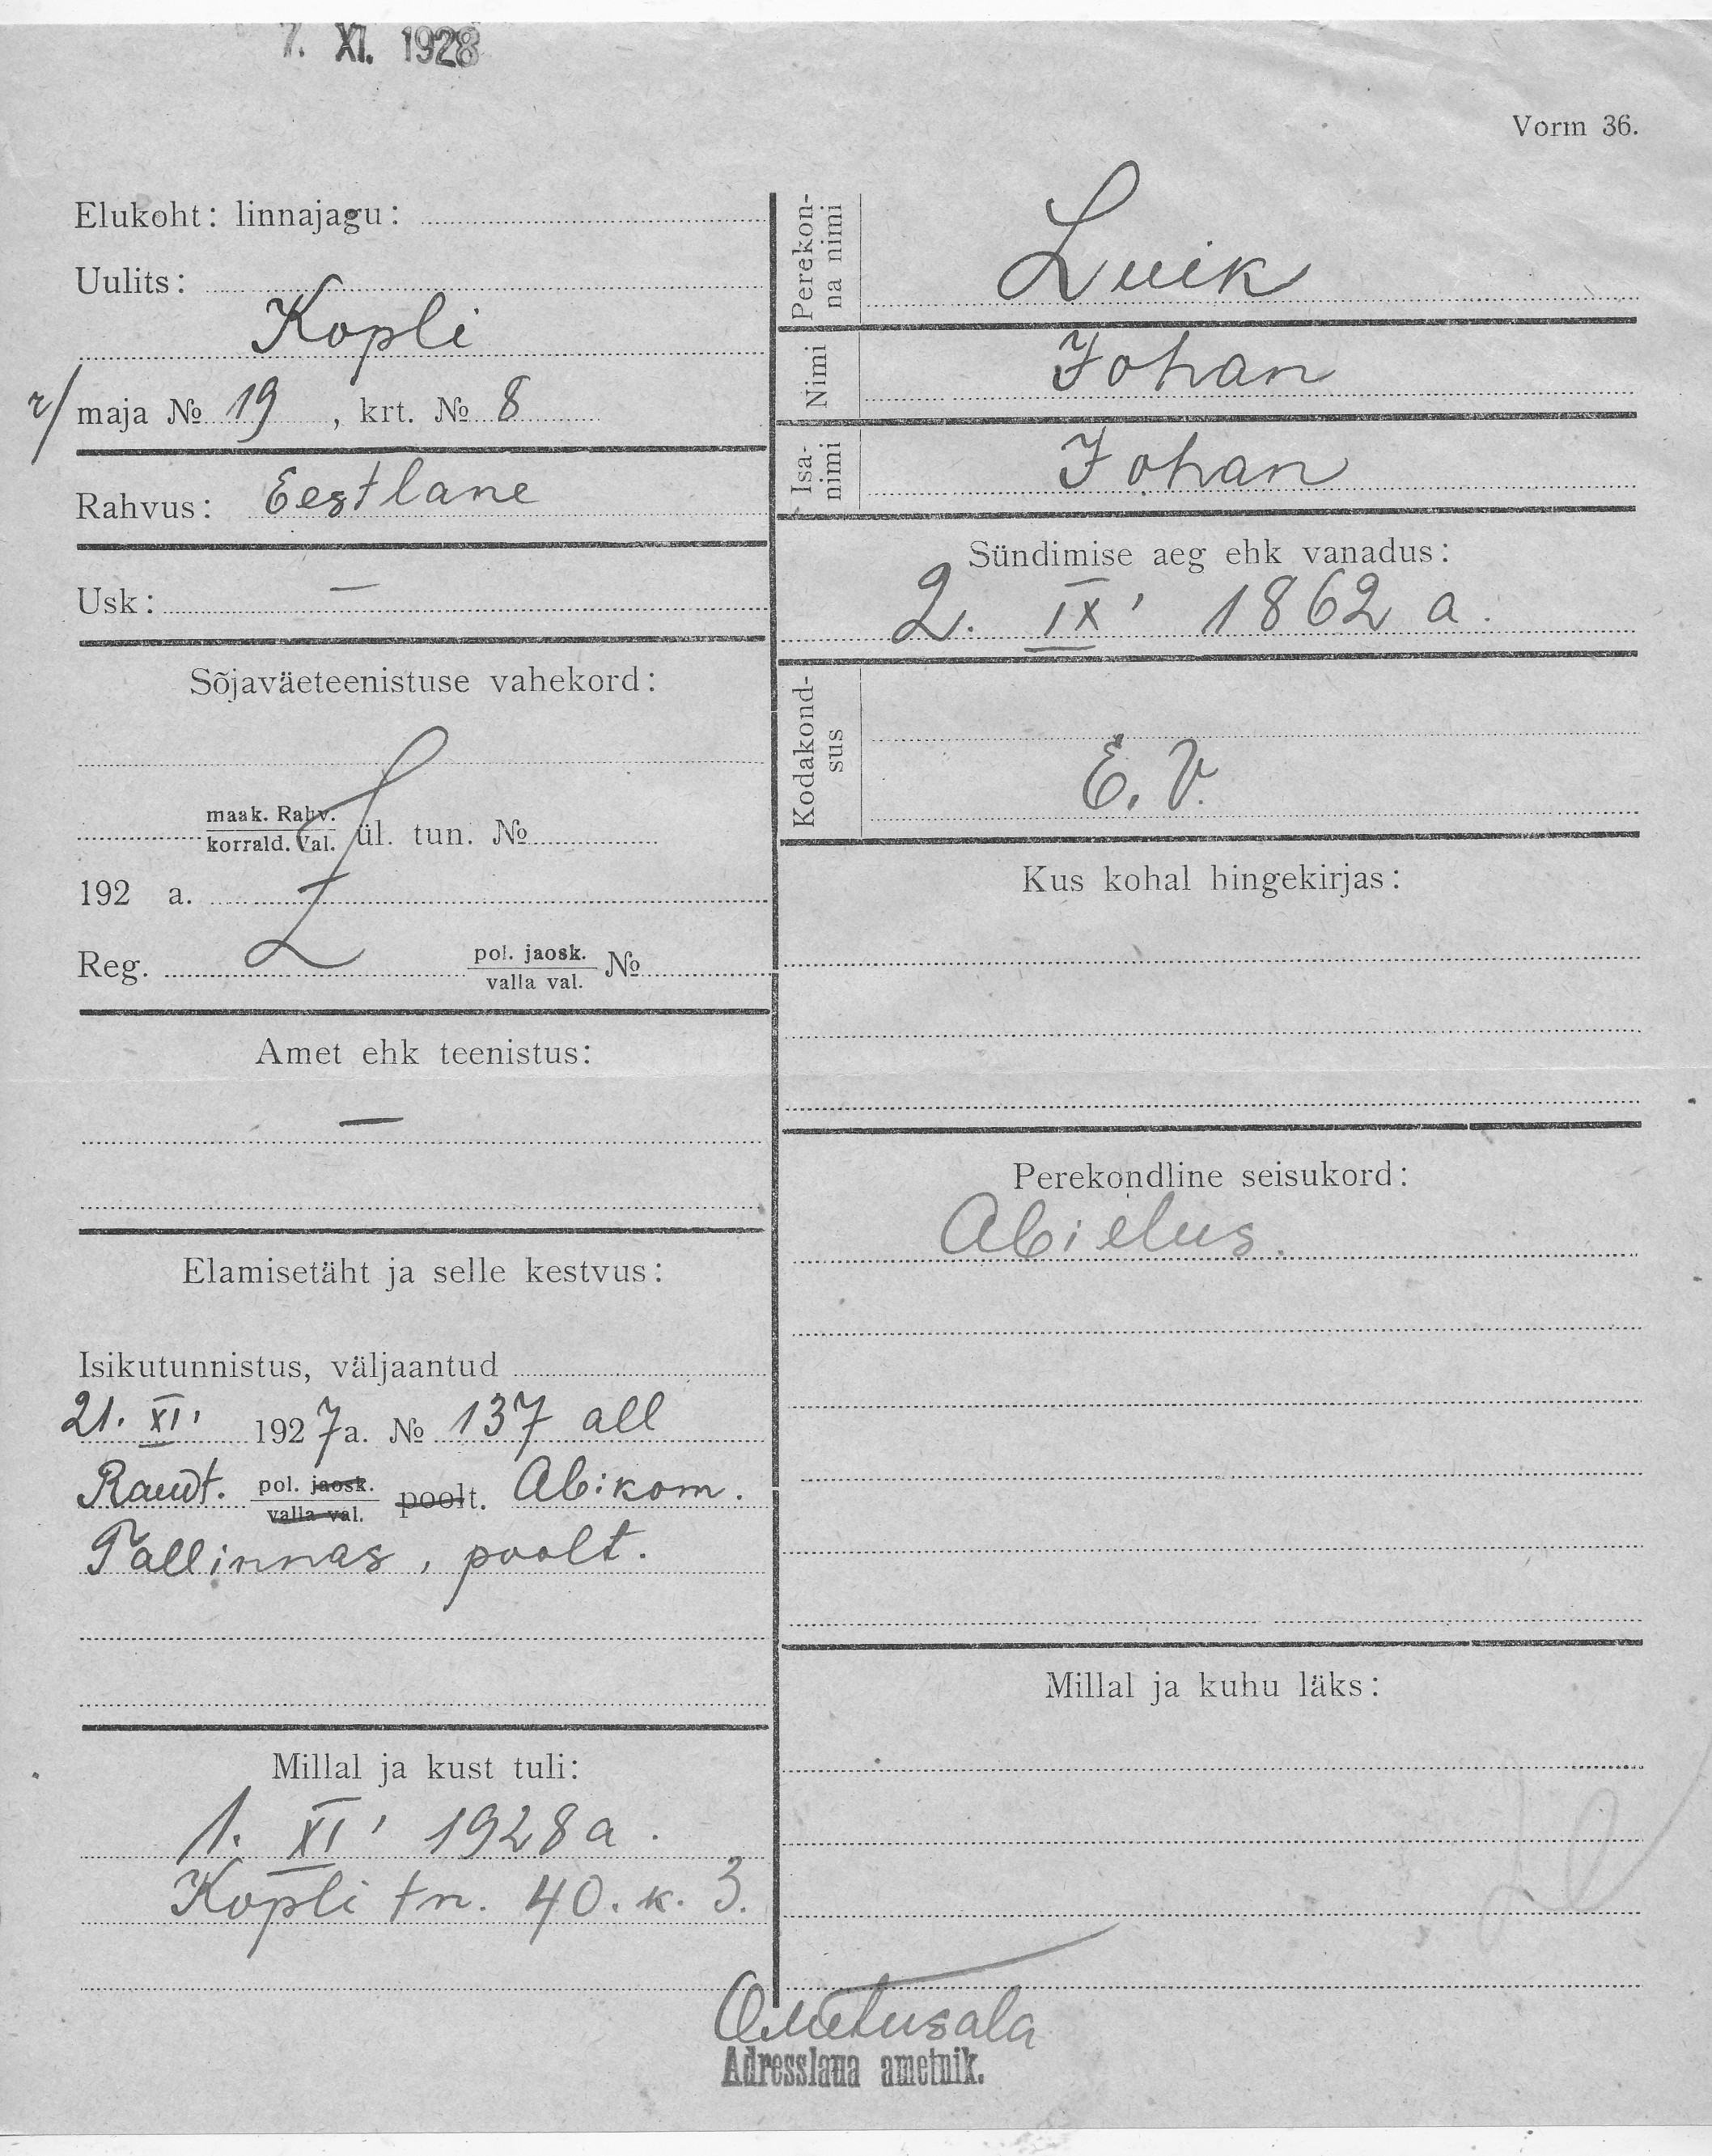 7. XI. 1928
Vorm 36.
Elukoht: linnajagu:
Uulits:
Kopli
maja № 19, krt. № 8
Rahvus: Eestlane
Usk: —
Sõjaväeteenistuse vahekord:
maak. Rahv.
korrald. Val. ül. tun. №
192 a.
Reg. pol. jaosk. №
valla val.
Amet ehk teenistus:
—
Elamisetäht ja selle kestvus:
Isikutunnistus, väljaantud
21. XI. 1927 a. № 137 all
Raudt. pol. jaosk. poolt. Abikom.
valla val.
Tallinnas, poolt.
Millal ja kust tuli:
1. XI' 1928 a.
Kopli tn. 40. k. 3.
Perekon-
na nimi
Luik
Nimi
Johan
Isa-
nimi
Johan
Sündimise aeg ehk vanadus:
2. IX' 1862 a.
Kodakond-
sus
E. V.
Kus kohal hingekirjas:
Perekondline seisukord:
Abielus.
Millal ja kuhu läks:
Adresslaua ametnik.